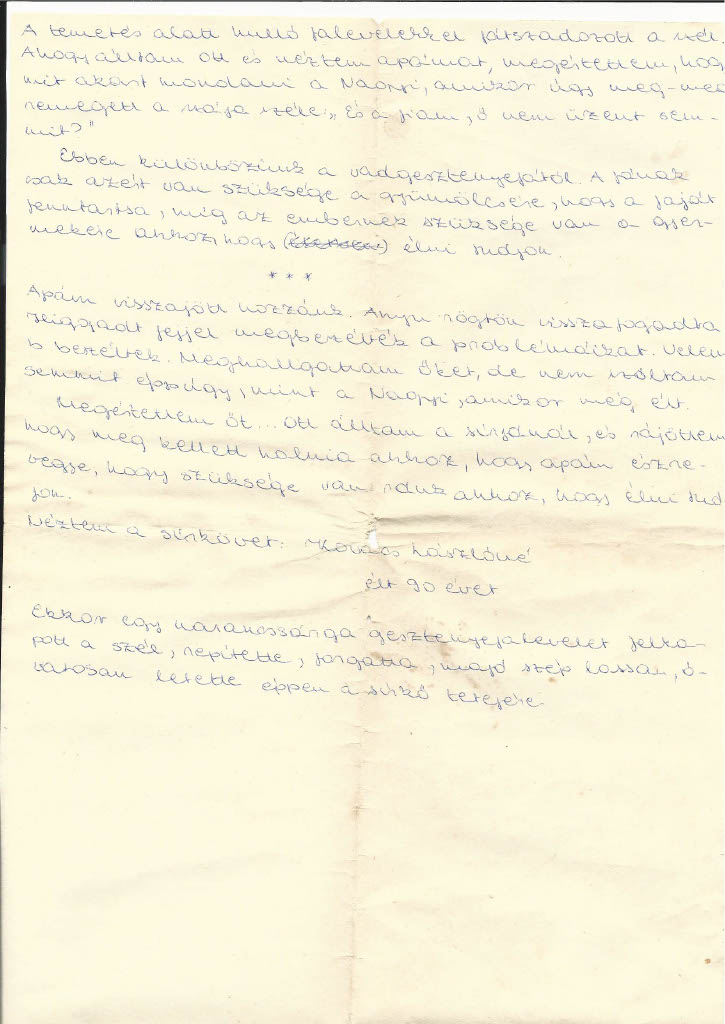 A temetés alatt hulló falevelekkel játszadozott a szél.
Ahogy álltam ott és néztem apámat, megértettem, hog
mit akart mondani a Nagyi, amikor úgy meg-meg
remegett a szája széle: „És a fiam, ő nem üzent sem-
mit?"
Ebben különbözünk a vadgesztenyefától. A fának
csak azért van szüksége a gyümölcsére, hogy a faját
fenntartsa, míg az embernek szüksége van a gyer-
mekére ahhoz, hogy ( ) élni tudjon.
* * *
Apám visszajött hozzánk. Anyu rögtön visszafogadta
higgadt fejjel megbeszélték a problémáikat. Velem
is beszéltek. Meghallgattam őket, de nem szóltam
semmit éppúgy, mint a Nagyi, amikor még élt.
Megértettem őt... ott álltam a sírjánál, és rájöttem
hogy meg kellett halnia ahhoz, hogy apám észre-
vegye, hogy szüksége van ahhoz, hogy élni tud
jon.
Néztem a sírkövet: Kovács Lászlóné
élt 90 évet
Ekkor egy narancssárga gesztenyefalevelet felka-
pott a szél, repítette, forgatta, majd szép lassan, ó-
vatosan letette éppen a sírkő tetejére.